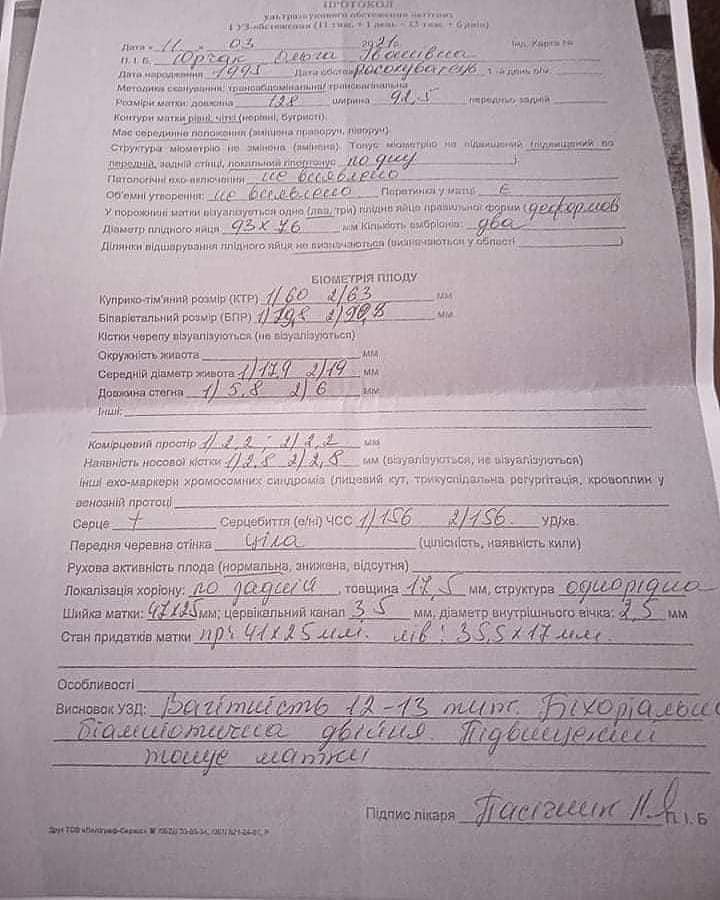 ПРОТОКОЛ
ультразвукового обстеження вагітних
І УЗ-обстеження (11 тиж. + 1 день – 13 тиж. + 6 днів)
Дата « 11 » 03 2021р. Інд. Карта №
П. І. Б. Ольга Іванівна
Дата народження 1995 Дата обстеж 1-й день о/м
Методика сканування: трансабдомінальна/ трансвагінальна
Розміри матки: довжина 128 ширина 92,5 передньо задній
Контури матки рівні, чіткі (нерівні, бугристі).
Має серединне положення (зміщена праворуч, ліворуч).
Структура міометрію не змінена (змінена). Тонус міометрію не підвищений (підвищений по
передній, задній стінці, локальний гіпертонус по дну ).
Патологічні ехо-включення не виявлено
Об'ємні утворення: не виявлено Перетинка у матці Є
У порожнині матки візуалізується одне (два, три) плідне яйце правильної форми (деформов
Діаметр плідного яйця 93 х 76 мм Кількість ембріонів: два
Ділянки відшарування плідного яйця не визначаються (визначаються у області )
БІОМЕТРІЯ ПЛОДУ
Куприко-тім'яний розмір (КТР) 1/ 60 2/ 63 мм
Біпарієтальний розмір (БПР) 1/ 2/ мм
Кістки черепу візуалізуються (не візуалізуються)
Окружність живота мм
Середній діаметр живота 1/ 17,9 2/ 19 мм
Довжина стегна 1/ 5,8 2/ 6 мм
Інші:
Комірцевий простір 1/ 2,2 ; 2/ 2,2 мм
Наявність носової кістки 1/ 2,8 2/ 2,8 мм (візуалізуються, не візуалізуються)
інші ехо-маркери хромосомних синдромів (лицевий кут, трикуспідальна регургітація, кровоплин у
венозній протоці
Серце + Серцебиття (є/ні) ЧСС 1/ 156 2/ 156. УД/хв.
Передня черевна стінка ціла (цілісність, наявність кили)
Рухова активність плода (нормальна, знижена, відсутня)
Локалізація хоріону: по задній , товщина 17,5 мм, структура однорідна
Шийка матки: 47х25 мм; цервікальний канал 3,5 мм, діаметр внутрішнього вічка: 2,5 мм
Стан придатків матки пр: 41 х 25 мм. лів: 35,5 х 17 мм.
Особливості
Висновок УЗД: Вагітність 12-13 тиж. Біхоріально
біамніотична двійня. Підвищений
тонус матки
Підпис лікаря Пасічник Н. П. І. Б
Друк ТОВ «Поліграф-Сервіс»